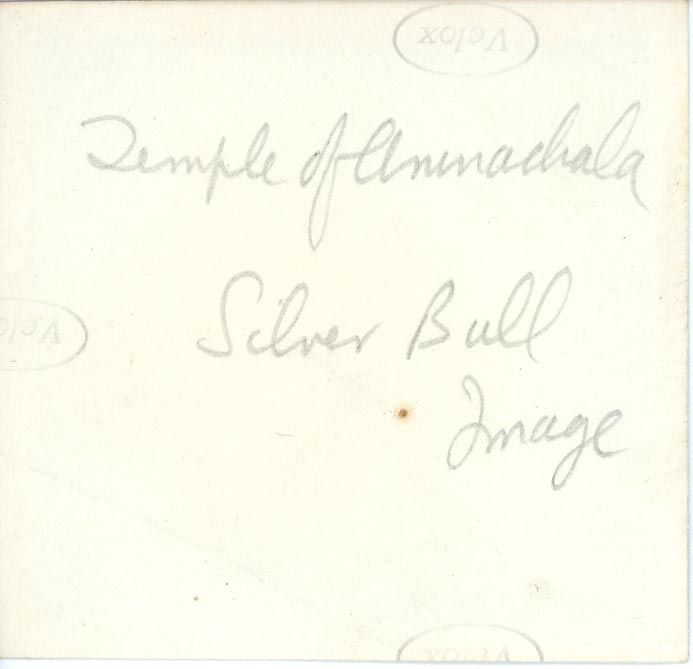 Velox
Temple of Arunachala
Silver Bull
Velox
Image
Velox